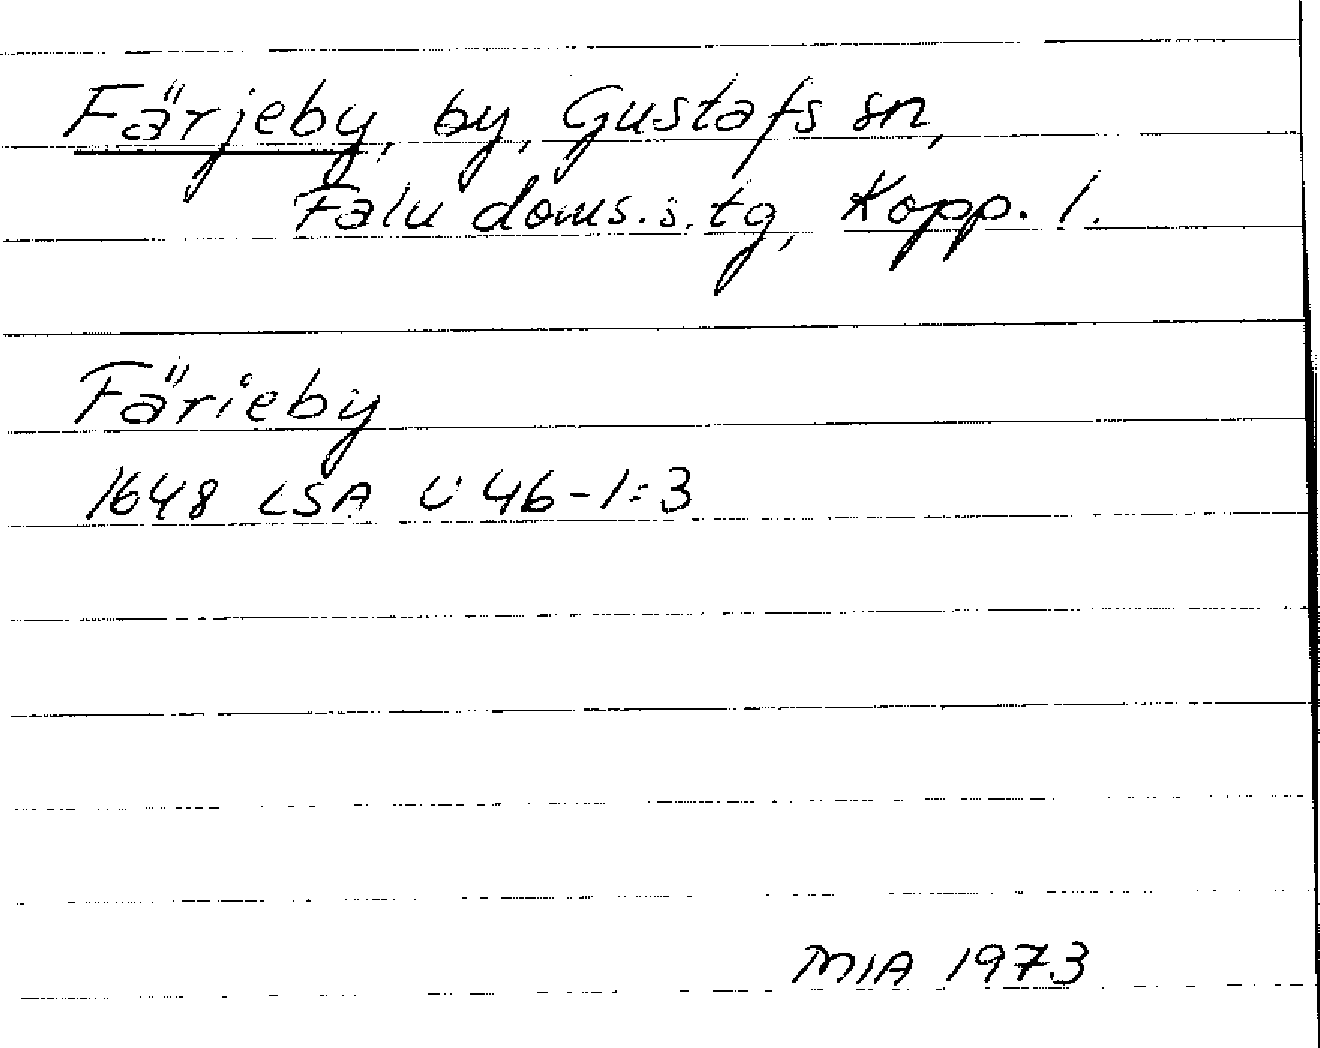 Färjeby, by, Gustafs sn,
Falu doms.s.tg, Kopp. l.
Färieby
1648 LSA U 46-1:3
MIA 1973